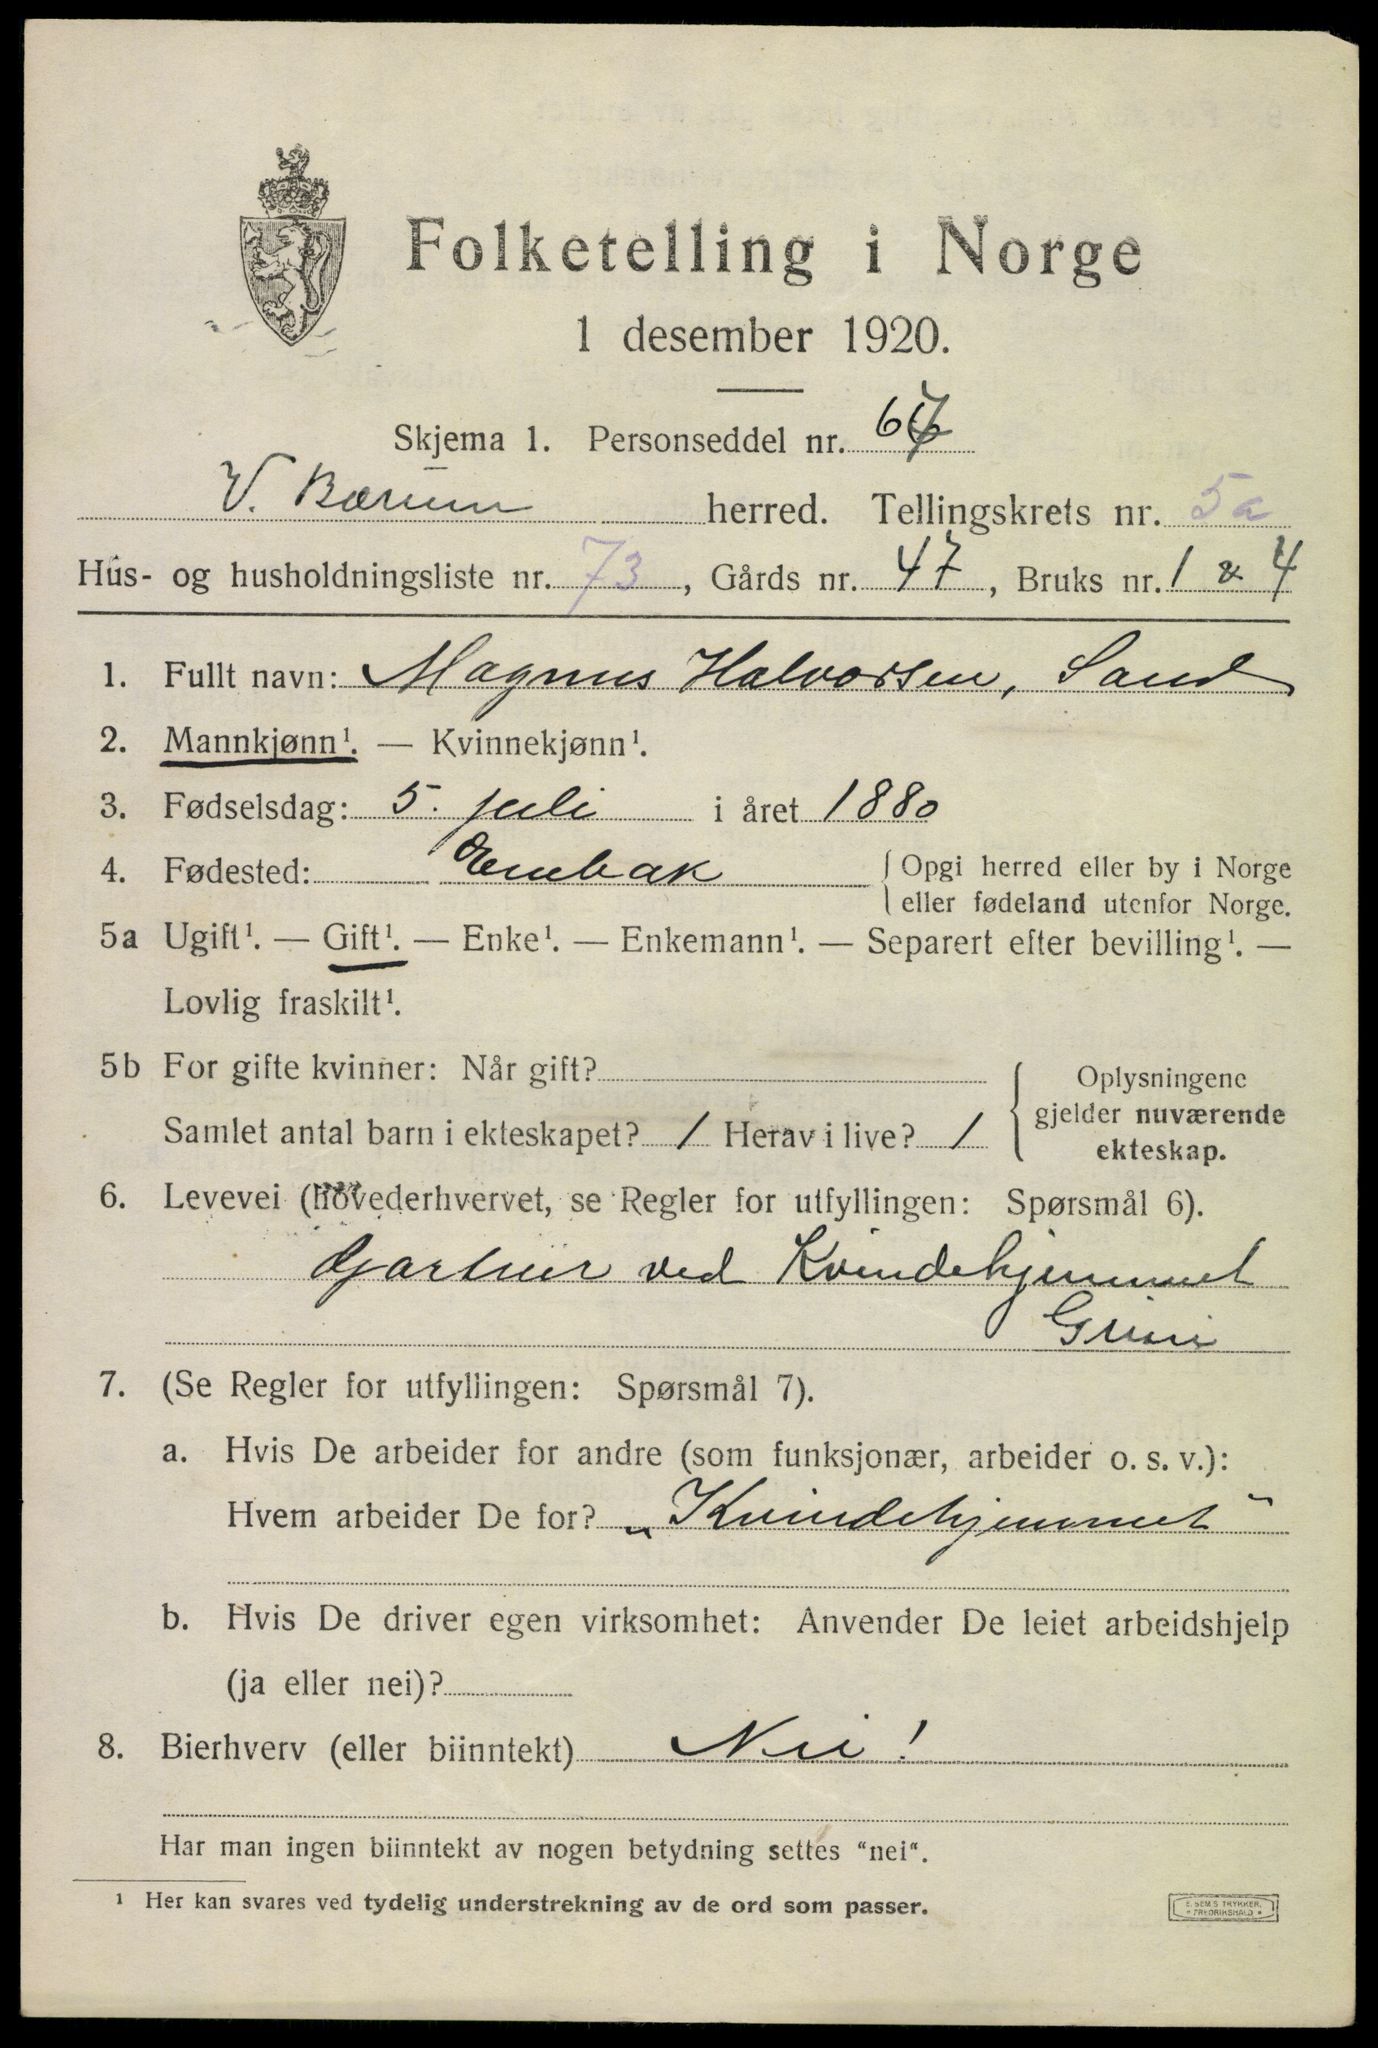 Folketelling i Norge
1 desember 1920.
Skjema 1. Personseddel nr. 67
V. Bærum herred. Tellingskrets nr. 5a
Hus- og husholdningsliste nr. 73, Gårds nr. 47, Bruks nr. 1 & 4
1. Fullt navn: Magnus Halvorsen, Sand
2. Mannkjønn¹. — Kvinnekjønn¹.
3. Fødselsdag: 5. juli i året 1880
4. Fødested: Enebak { Opgi herred eller by i Norge
eller fødeland utenfor Norge.
5a Ugift¹. — Gift¹. — Enke¹. — Enkemann¹. — Separert efter bevilling¹. —
Lovlig fraskilt¹.
5b For gifte kvinner: Når gift?
Samlet antal barn i ekteskapet? 1 Herav i live? 1
{ Oplysningene
gjelder nuværende
ekteskap.
6. Levevei (hovederhvervet, se Regler for utfyllingen: Spørsmål 6).
Gartner ved Kvindehjemmet
Grini
7. (Se Regler for utfyllingen: Spørsmål 7).
a. Hvis De arbeider for andre (som funksjonær, arbeider o. s. v.):
Hvem arbeider De for? „Kvindehjemmet"
b. Hvis De driver egen virksomhet: Anvender De leiet arbeidshjelp
(ja eller nei)?
8. Bierhverv (eller biinntekt) Nei!
Har man ingen biinntekt av nogen betydning settes “nei“.
¹ Her kan svares ved tydelig understrekning av de ord som passer.
E. SEM'S TRYKKERI
* FREDRIKSHALD *